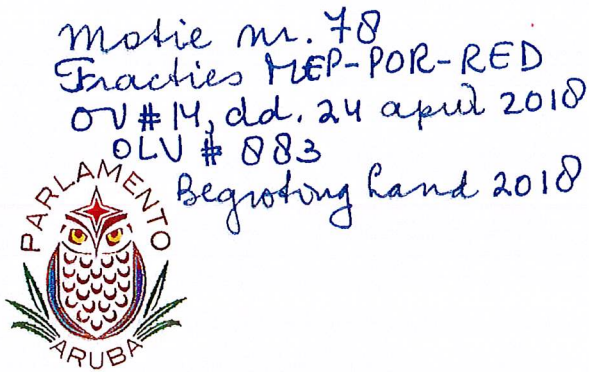 Motie nr. 78
Fracties MEP-POR-RED
OV # 14, dd. 24 april 2018
OLV # 883
Begroting Land 2018
PARLAMENTO
ARUBA